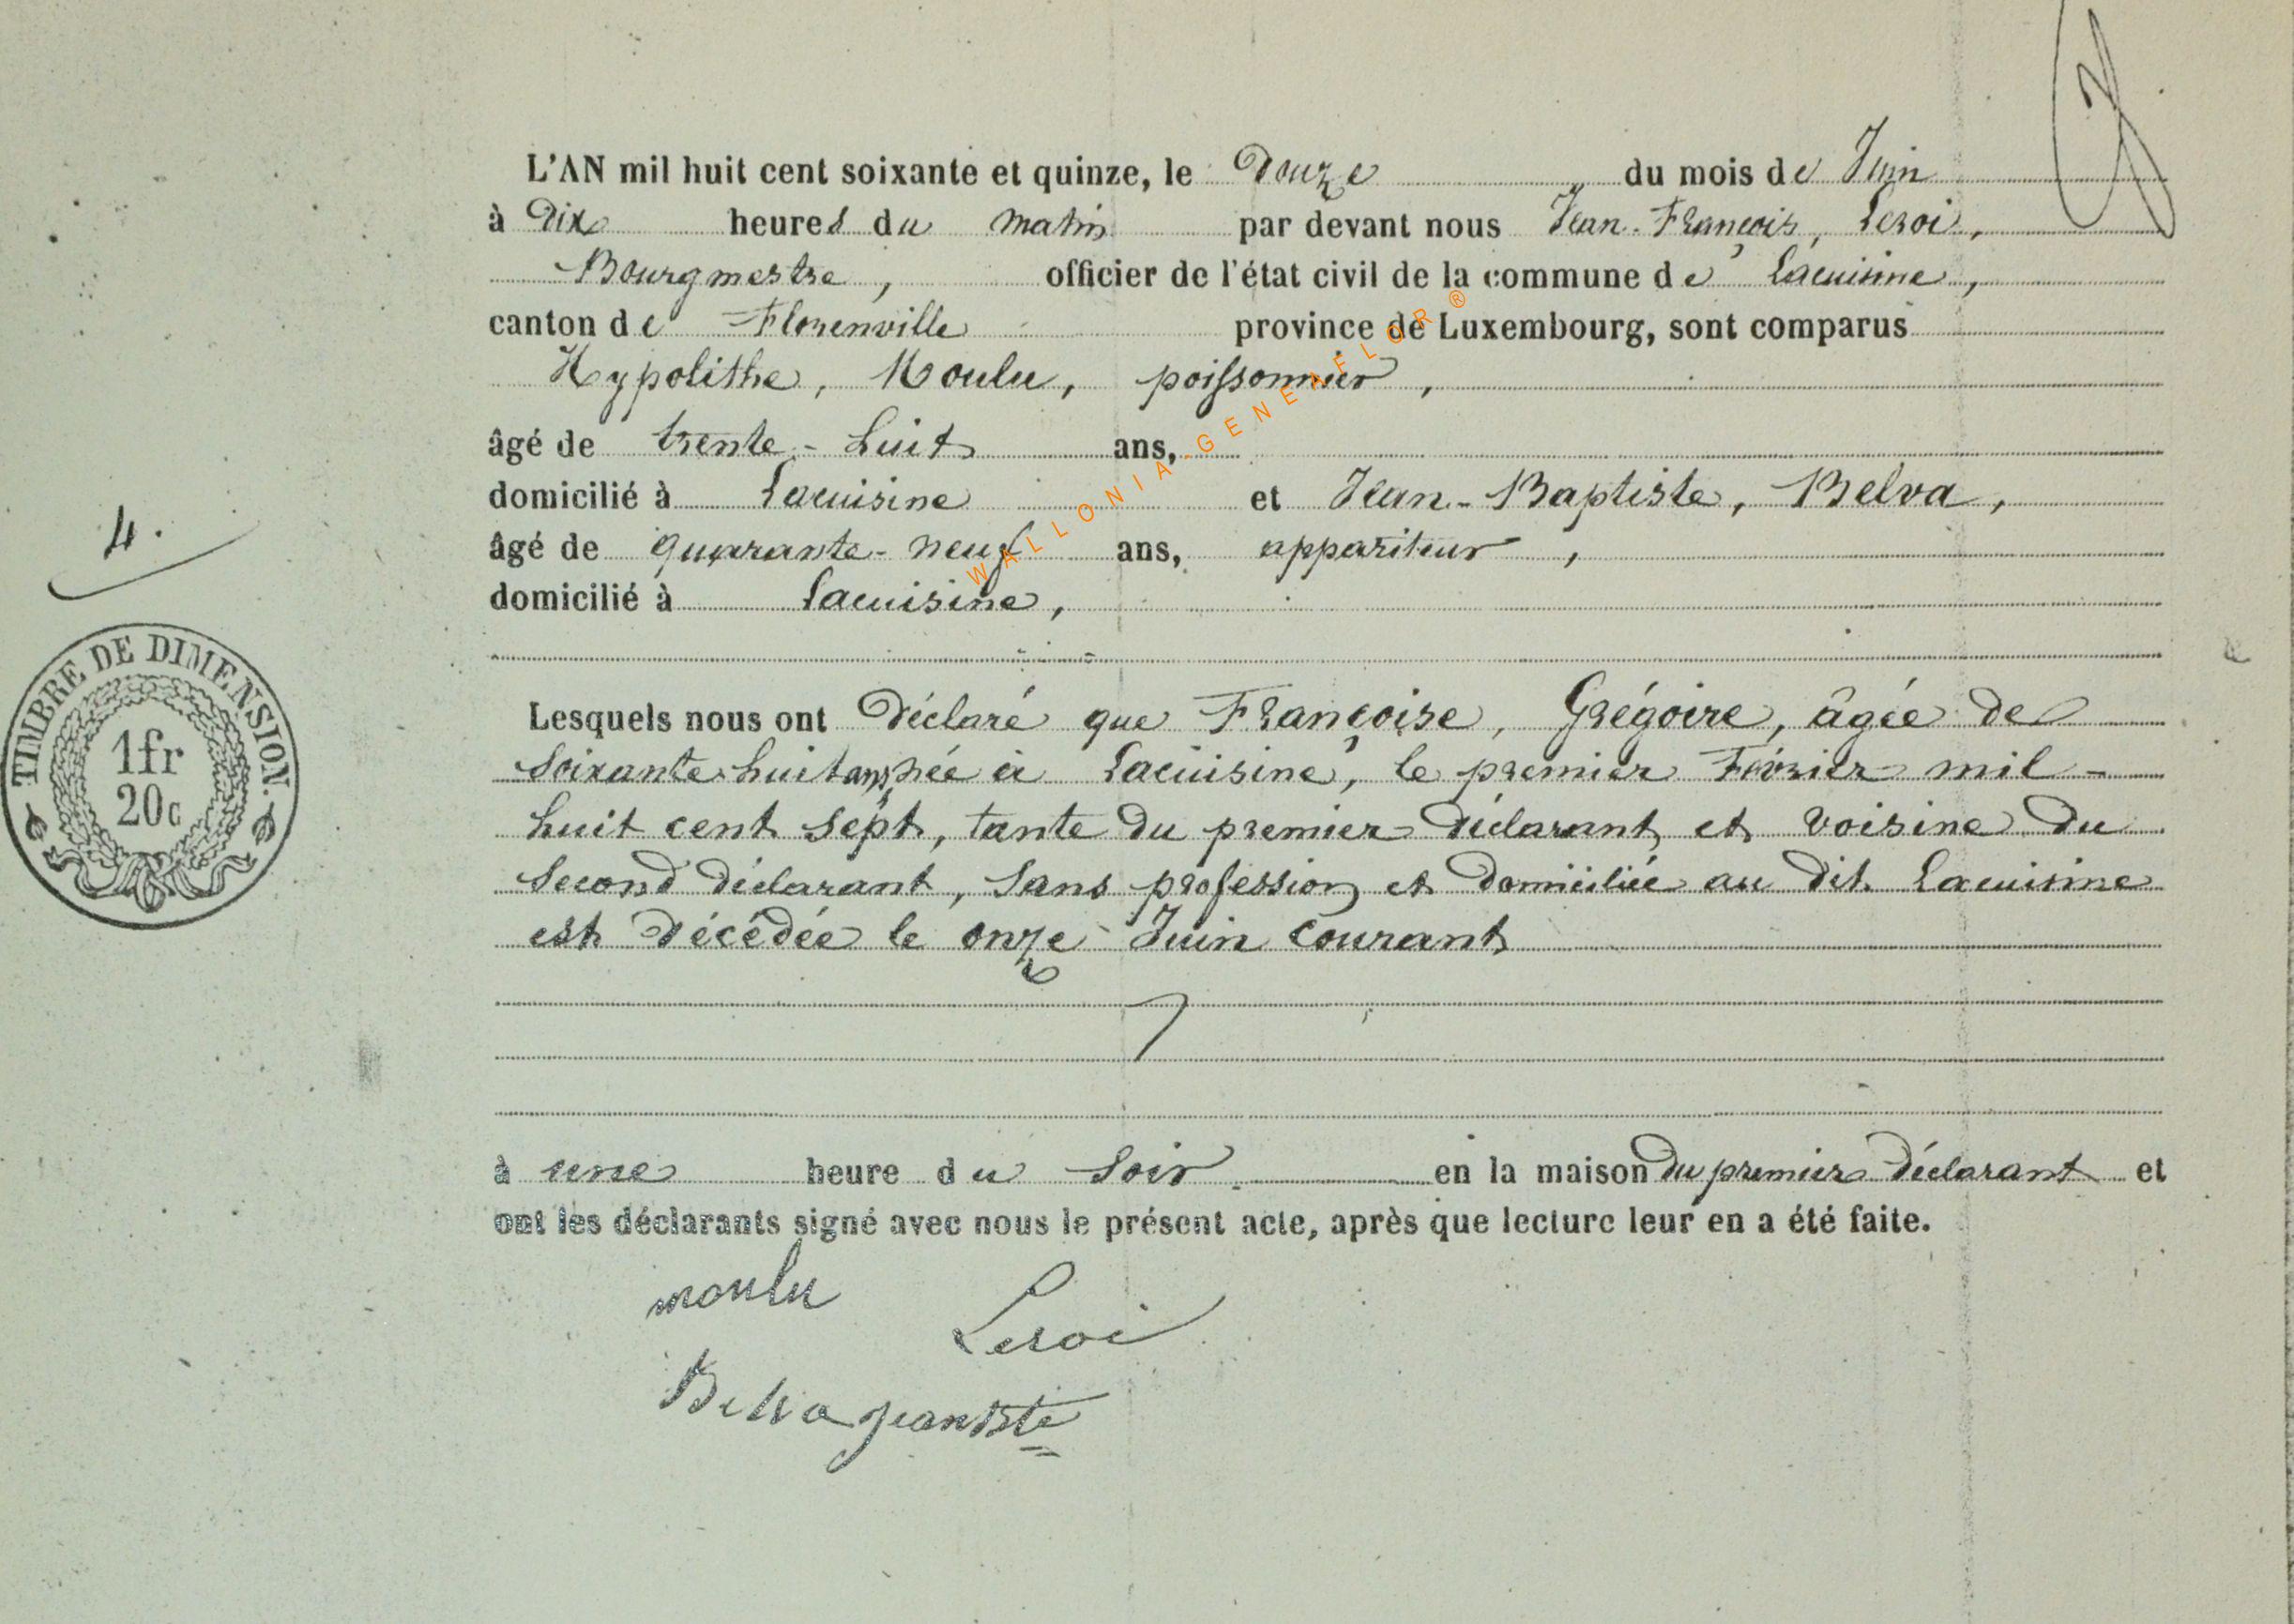 L'AN mil huit cent soixante et quinze, le Douze du mois de Juin
à Dix heures du matin par devant nous Jean-François, Leroi,
Bourgmestre, officier de l'état civil de la commune de Lacuisine,
canton de Florenville province de Luxembourg, sont comparus
Hypolithe, Moulu, poissonnier,
âgé de trente-huit ans,
domicilié à Lacuisine et Jean-Baptiste, Belva,
âgé de quarante-neuf ans, appariteur,
domicilié à Lacuisine,
4.
TIMBRE DE DIMENSION.
1fr
20c
Lesquels nous ont Déclaré que Françoise, Grégoire, âgée de
soixante-huit ans, née à Lacuisine, le premier Février mil-
huit cent sept, tante du premier déclarant et voisine du
second déclarant, sans profession et domiciliée au dit Lacuisine
est décédée le onze Juin courant
à une heure du soir. en la maison du premier déclarant et
ont les déclarants signé avec nous le présent acte, après que lecture leur en a été faite.
moulu
Leroi
Belva jean Bte
WALLONIA-GENEAFLOR®